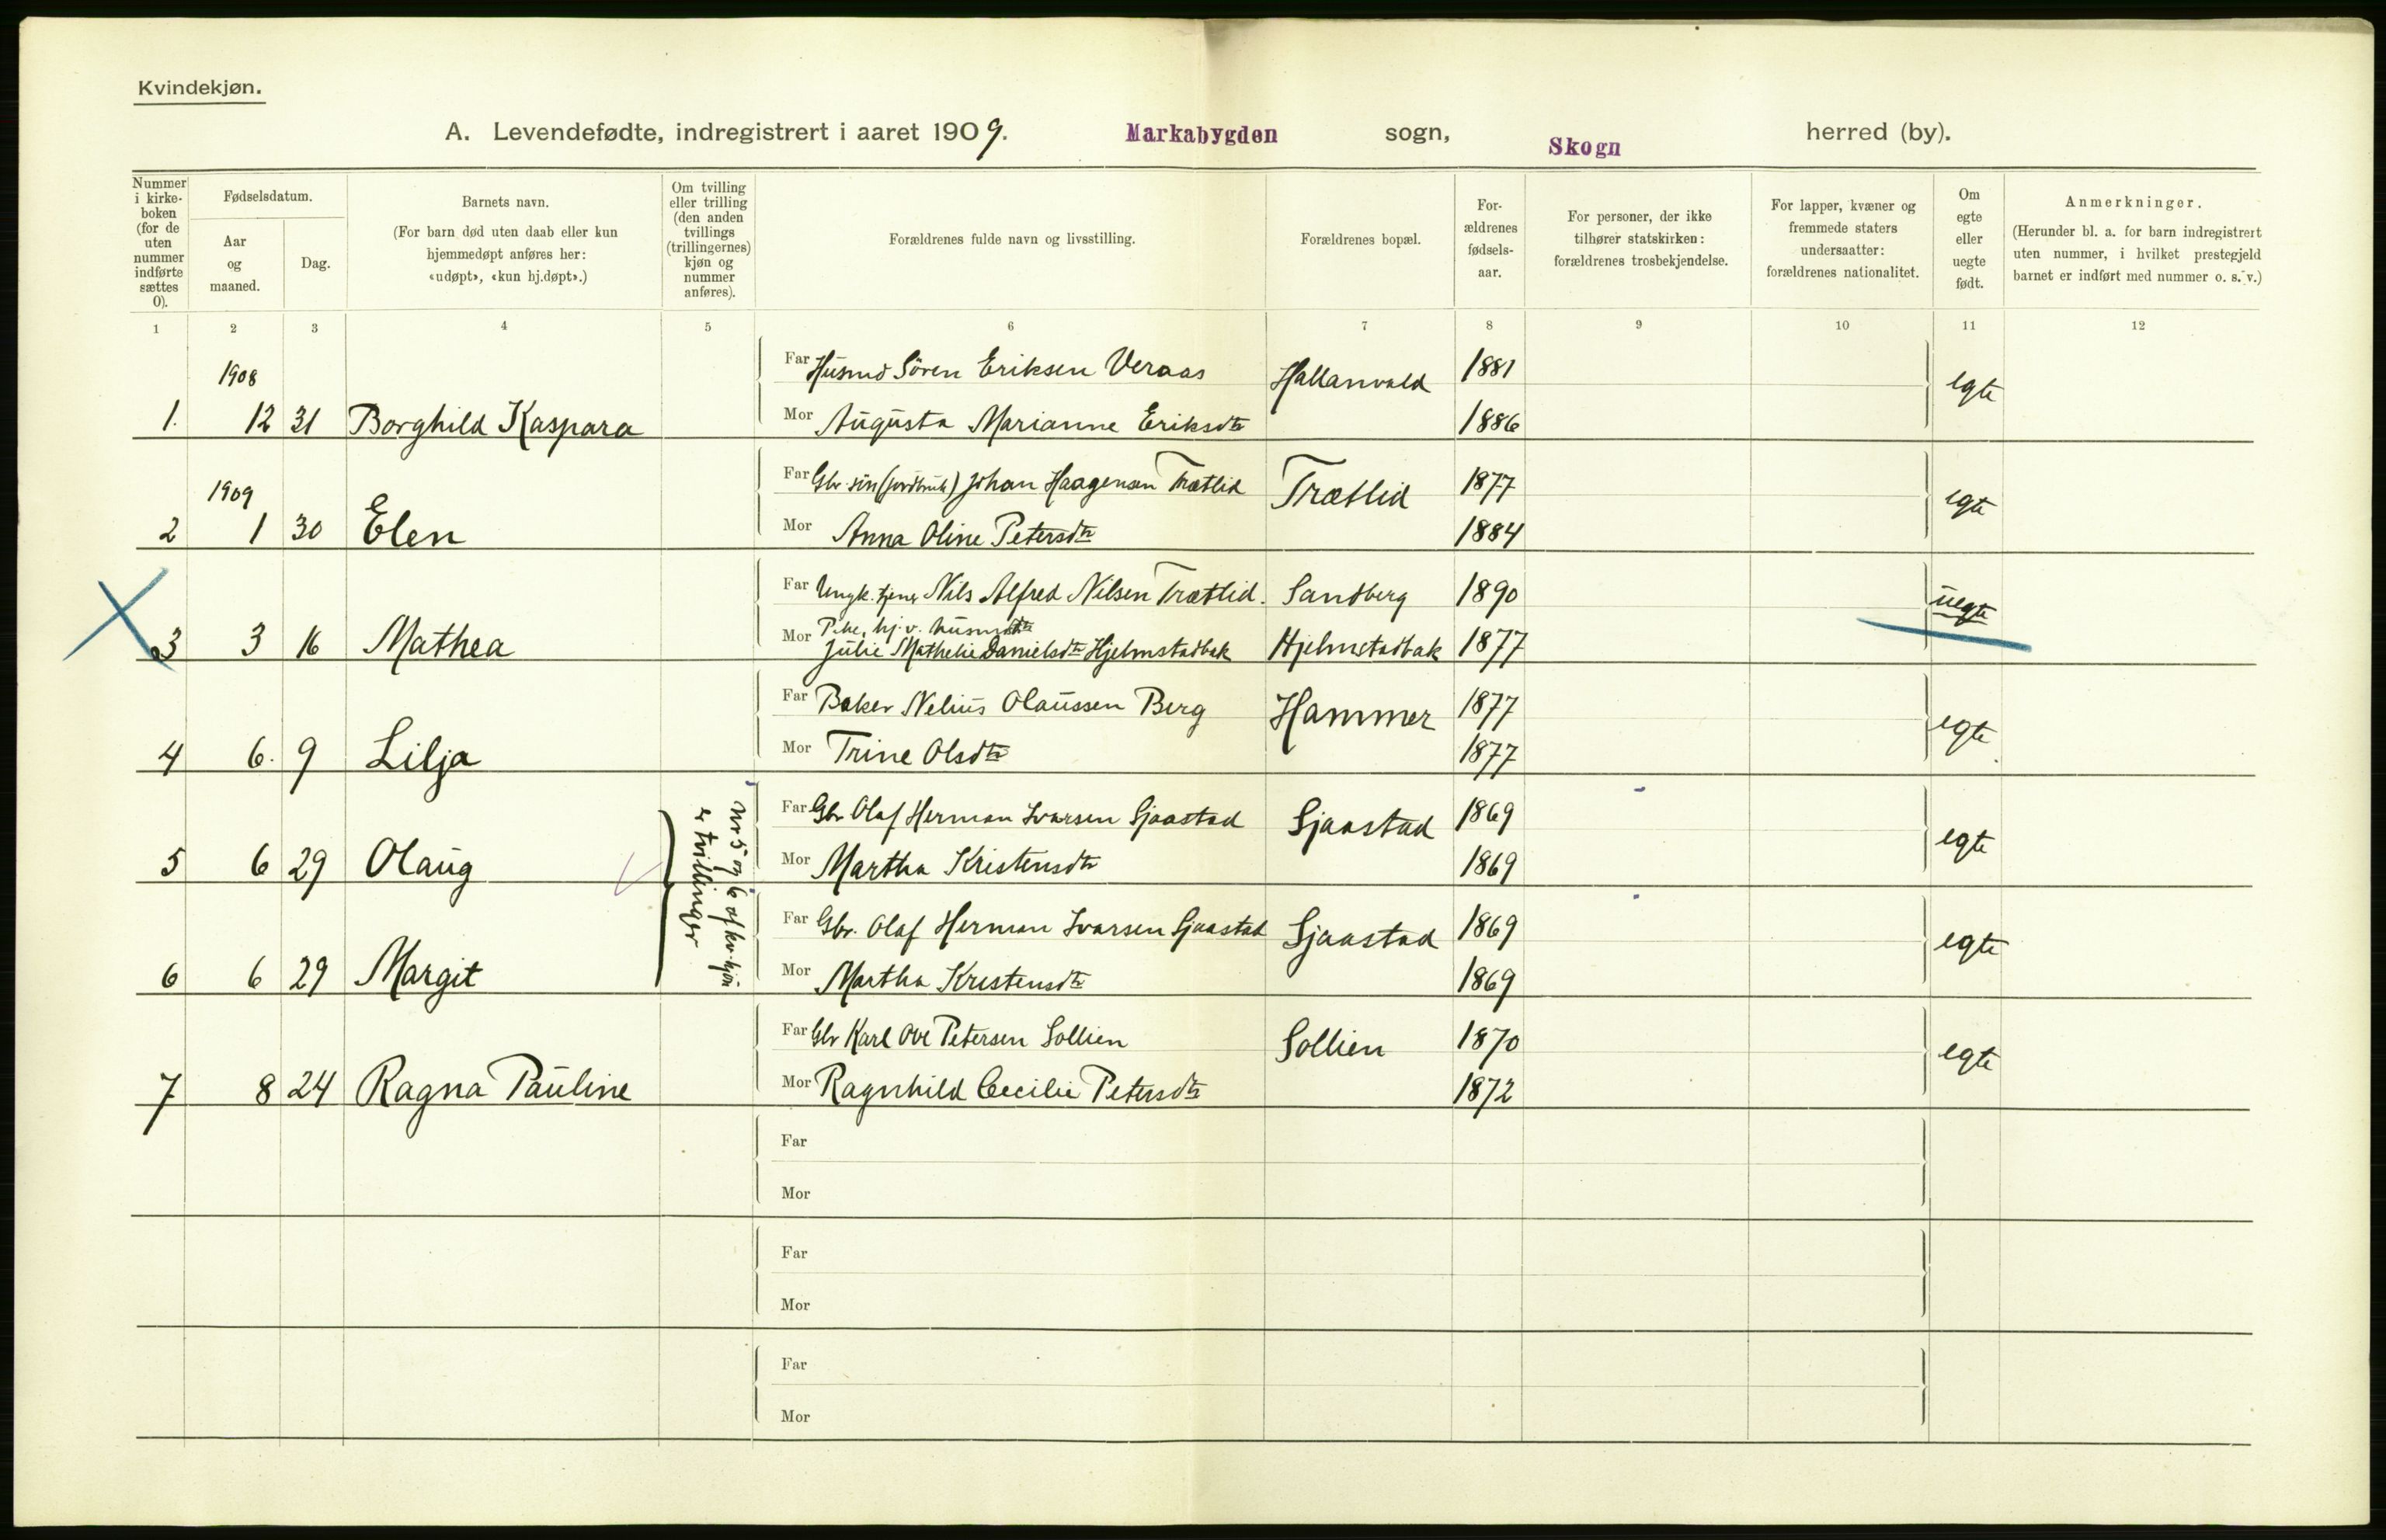 Kvindekjøn.
A. Levendefødte, indregistrert i aaret 1909. Markabygden sogn, Skogn herred (by).
Nummer i kirke-boken (for de uten nummer indførte sættes 0).
Fødselsdatum.
Aar og maaned.
Dag.
Barnets navn.
(For barn død uten daab eller kun hjemmedøpt anføres her: «udøpt», «kun hj.døpt».)
Om tvilling eller trilling (den anden tvillings (trillingernes) kjøn og nummer anføres).
Forældrenes fulde navn og livsstilling.
Forældrenes bopæl.
For-ældrenes fødsels-aar.
For personer, der ikke tilhører statskirken: forældrenes trosbekjendelse.
For lapper, kvæner og fremmede staters undersaatter: forældrenes nationalitet.
Om egte eller uegte født.
Anmerkninger.
(Herunder bl. a. for barn indregistrert uten nummer, i hvilket prestegjeld barnet er indført med nummer o. s. v.)
1 2 3 4 5 6 7 8 9 10 11 12
1908
Far Husmd Sören Eriksen Veraas Hallanvald 1881 egte
1. 12 31 Borghild Kaspara Mor Augusta Marianne Eriksdtr 1886
1909
Far Gbr. sön (jordbruk) Johan Haagensen Trætlid Trætlid 1877 egte
2 1 30 Elen Mor Anna Oline Petersdtr 1884
Far Ungk. tjener Nils Alfred Nilsen Trætlid. Sandberg 1890 uegte
Pike, hj. v.
3 3 16 Mathea Mor Julie Mathelie Danielsdtr Hjelmstadbak Hjelmstadbak 1877
Far Baker Nelius Olaussen Berg Hammer 1877 egte
4 6. 9 Lilja Mor Trine Olsdtr 1877
Nr 5 og 6 af kv. kjön
er tvillinger
Far Gbr Olaf Herman Ivarsen Sjaastad Sjaastad 1869 egte
5 6 29 Olaug Mor Martha Kristensdtr 1869
Far Gbr. Olaf Herman Ivarsen Sjaastad Sjaastad 1869 egte
6 6 29 Margit Mor Martha Kristensdtr 1869
Far Gbr Karl Ove Petersen Sollien Sollien 1870 egte
7 8 24 Ragna Pauline Mor Ragnhild Cecilie Petersdtr 1872
Far
Mor
Far
Mor
Far
Mor